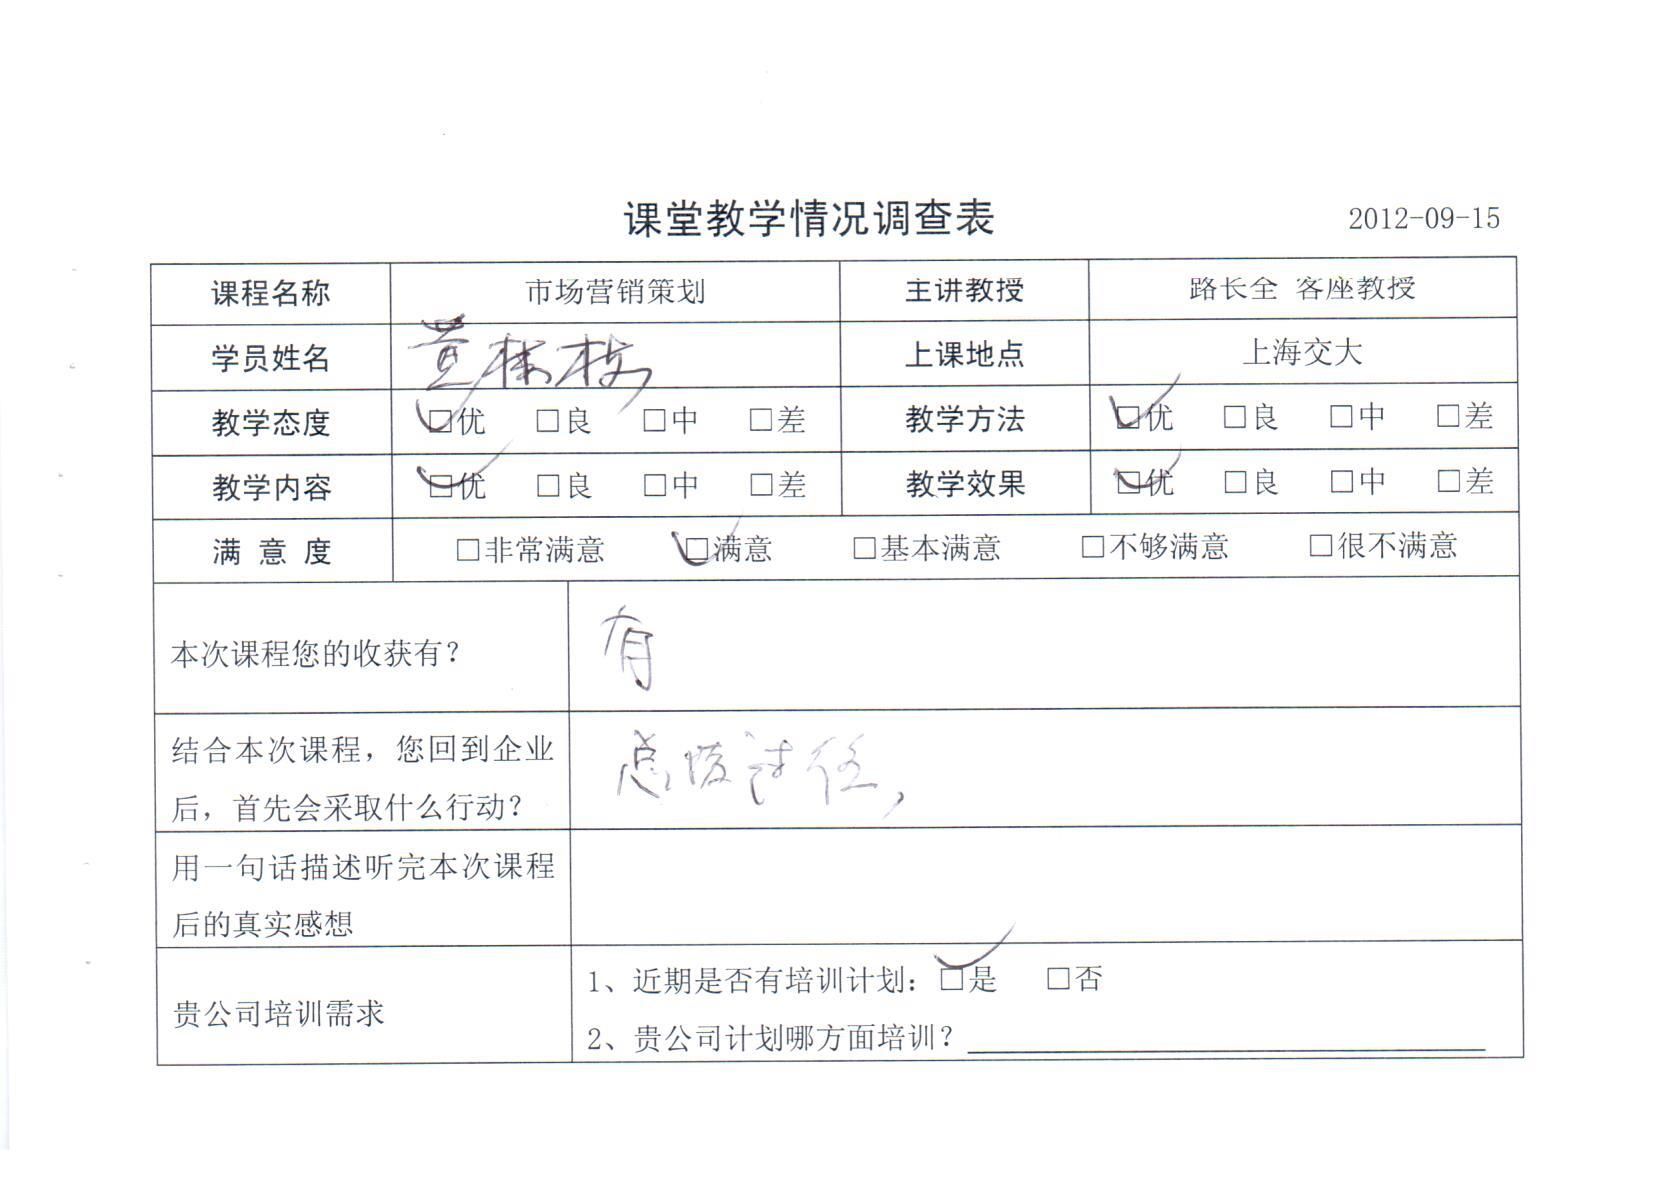 课堂教学情况调查表 2012-09-15
课程名称 市场营销策划 主讲教授 路长全 客座教授
学员姓名 黄 上课地点 上海交大
教学态度 □优 □良 □中 □差 教学方法 □优 □良 □中 □差
教学内容 □优 □良 □中 □差 教学效果 □优 □良 □中 □差
满意度 □非常满意 □满意 □基本满意 □不够满意 □很不满意
本次课程您的收获有？ 有
结合本次课程，您回到企业
后，首先会采取什么行动？
用一句话描述听完本次课程
后的真实感想
贵公司培训需求
1、近期是否有培训计划：□是 □否
2、贵公司计划哪方面培训？